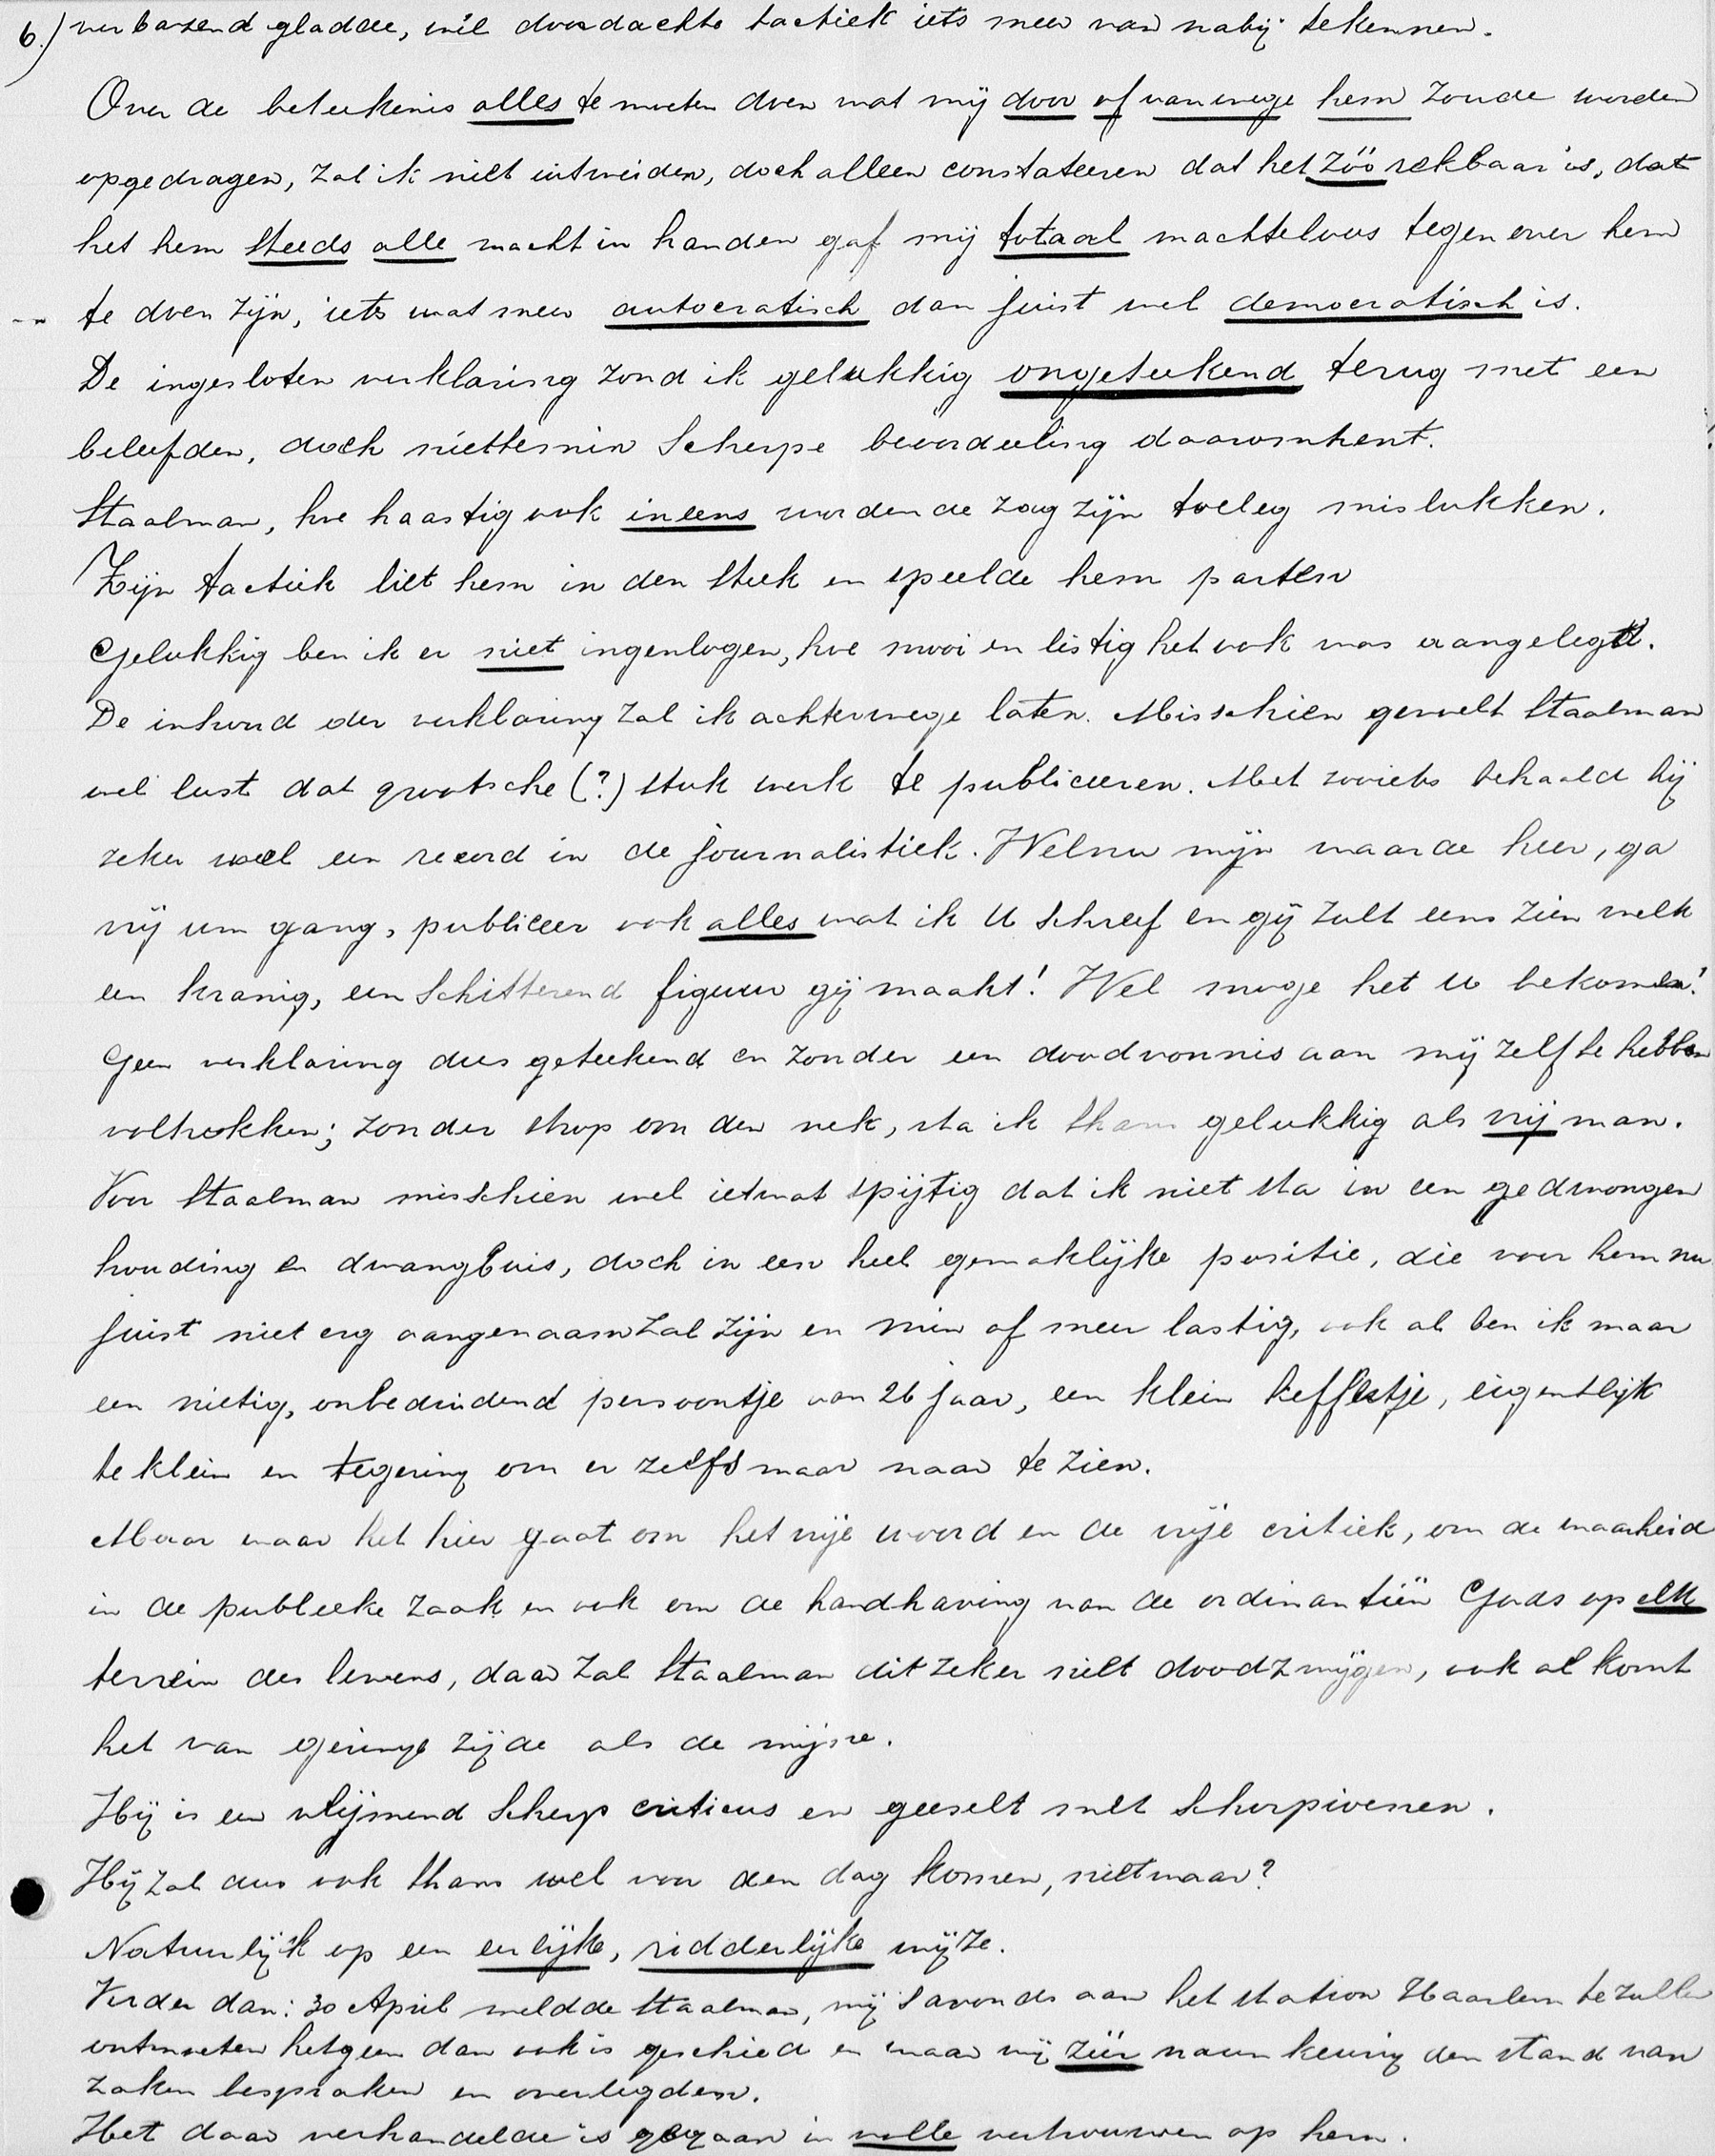 6.) verbazend gladde, wèl doordachte tactiek iets meer van nabij te kennen.
Over de beteekenis alles te moeten doen wat mij door of vanwege hem zoude worden
opgedragen, zal ik niet uitweiden, doch alleen constateeren dat het zóó rekbaar is, dat
het hem steeds alle macht in handen gaf mij totaal machteloos tegenover hem
te doen zijn, iets wat meer autocratisch dan juist wel democratisch is.
De ingesloten verklaring zond ik gelukkig ongeteekend terug met een
beleefden, doch niettemin scherpe beoordeeling daaromtrent.
Staalman, hoe haastig ook ineens wordende zag zijn toeleg mislukken.
Zijn tactiek liet hem in den steek en speelde hem parten
Gelukkig ben ik er niet ingevlogen, hoe mooi en listig het ook was aangelegd.
De inhoud der verklaring zal ik achterwege laten. Misschien gevoelt Staalman
wel lust dat grootsche (?) stuk werk te publiceeren. Met zooiets behaald hij
zeker weel een record in de journalistiek. Welnu mijn waarde heer, ga
vrij uw gang, publiceer ook alles wat ik U schreef en gij zult eens zien welk
een kranig, een schitterend figuur gij maakt! Wel moge het U bekomen!
Geen verklaring dus geteekend en zonder een doodvonnis aan mij zelf te hebben
voltrokken; zonder strop om den nek, sta ik thans gelukkig als vrij man.
Voor Staalman misschien wel ietwat spijtig dat ik niet sta in een gedwongen
houding en dwangbuis, doch in een heel gemaklijke positie, die voor hem nu
juist niet erg aangenaam zal zijn en min of meer lastig, ook al ben ik maar
een nietig, onbeduidend persoontje van 26 jaar, een klein keffertje, eigentlijk
te klein en te gering om er zelfs maar naar te zien.
Maar waar het hier gaat om het vrije woord en de vrije critiek, om de waarheid
in de publieke zaak en ook om de handhaving van de ordinantiën Gods op elk
terrein des levens, daar zal Staalman dit zeker niet doodzwijgen, ook al komt
het van geringe zijde als de mijne.
Hij is een vlijmend scherp criticus en geeselt met schorpioenen.
Hij zal dus ook thans wel voor den dag komen, nietwaar?
Natuurlijk op een eerlijke, ridderlijke wijze.
Verder dan: 30 April meldde Staalman, mij 's avonds aan het station Haarlem te zullen
ontmoeten hetgeen dan ook is geschied en waar wij zéér nauwkeurig den stand van
zaken bespraken en overlegden.
Het daar verhandelde is gegaan in volle vertrouwen op hem.